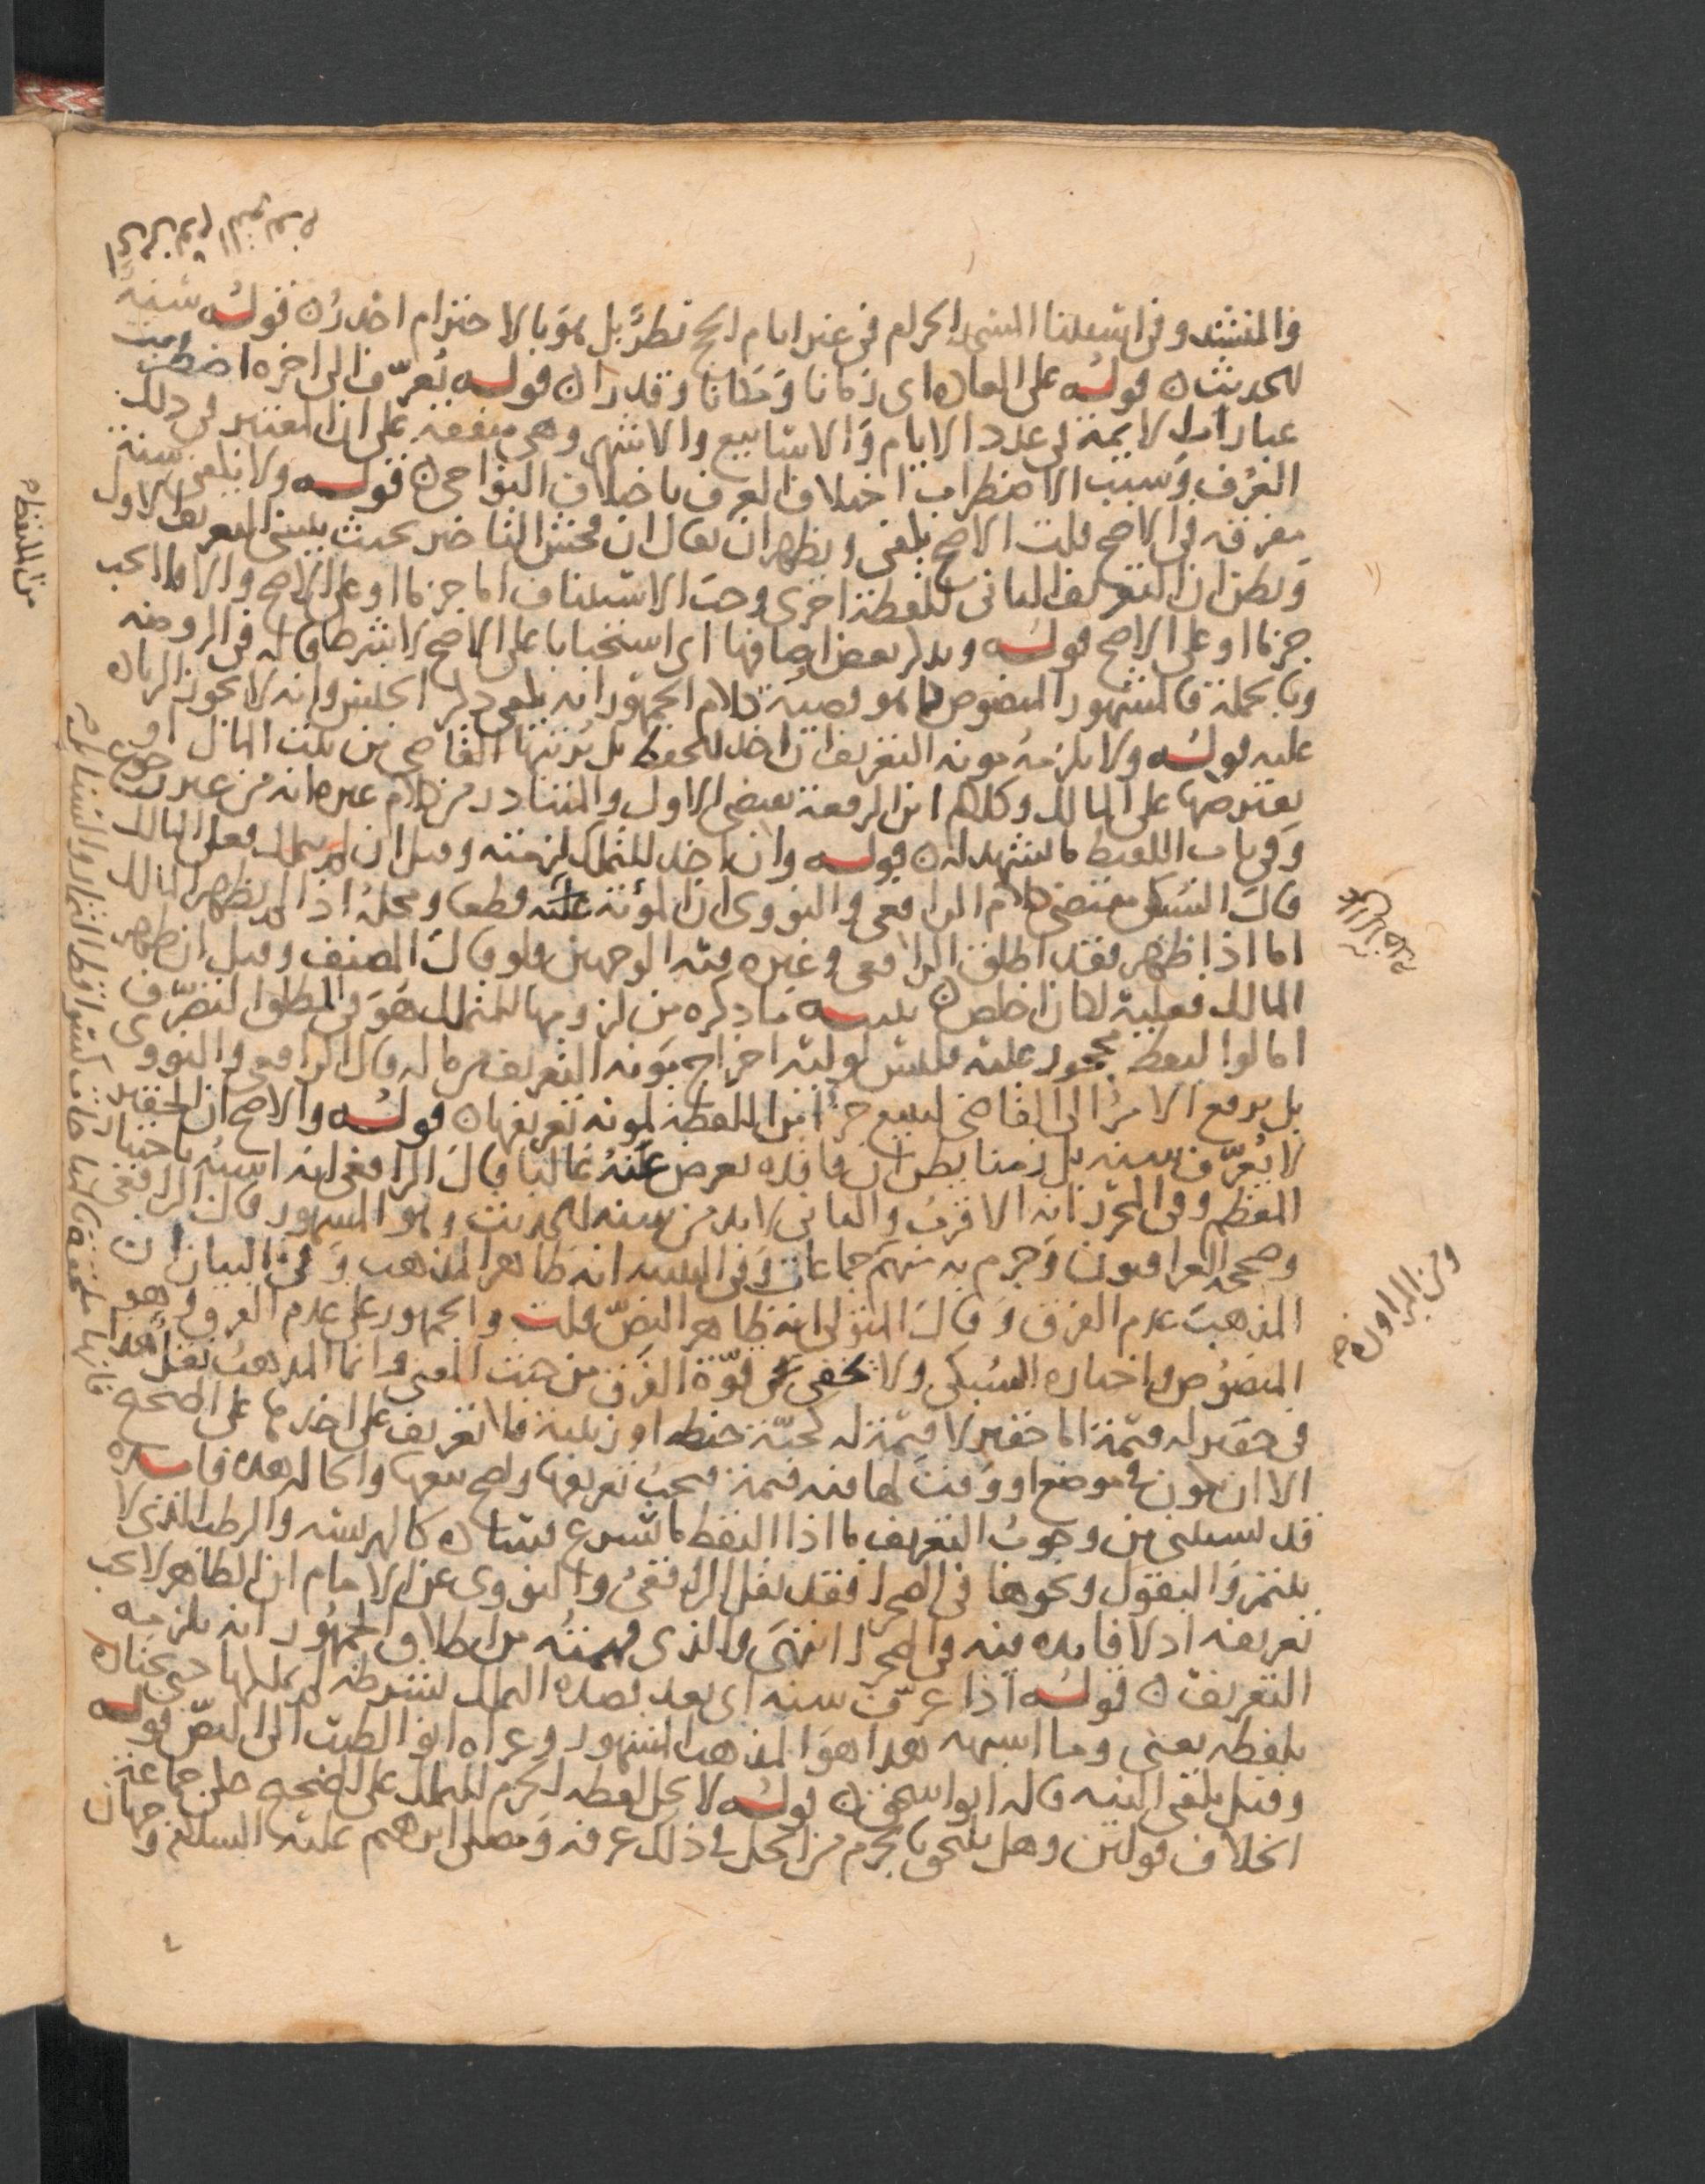 والمنشد وفى استثنا المسجد الحرام فى غير ايام الحج نظرٌ بل هو بالاحترام اجدرُ قوله سنة
للحديث قوله على العادة اى زمانا ومكانا وقدرا قوله يعرّف الى اخره اضطربت
عبارات الايمة فى عدد الايام والاسابيع والاشهر وهى متفقة على ان المعتبر فى ذلك
العُرف وسبب الاضطراب اختلاف العرف باختلاف النواحى قوله ولا يكفى سنة
مفرقة فى الاصح قلت الاصح يكفى ويظهر ان يقال ان فحش التاخير بحيث ينسى التعريف الاول
ويظن ان التعريف الثانى للقطة اخرى وجب الاستئناف اما جزما او على الاصح والا فلا يجب
جزما او على الاصح قوله ويذكر بعض اوصافها اى استحبابا على الاصح لا شرطا قاله فى الروضة
وبالجملة فالمشهور المنصوص كما هو قضية كلام الجمهور انه يكفى ذكر الجنس وانه لا يجوز الزيادة
عليه قوله ولا يلزمه مونه التعريف ان اخذ للحفظ بل يرتبها القاضى من بيت المال او
يقترضها على المالك وكلام ابن الرفعة يقتضى الاول والمتبادر من كلام غيره انه من غير رجوع
وفى باب اللقيط ما يشهد له قوله وان اخذ للتملك لزمته وقيل ان لم يتملك فعلى المالك
قال السبكى مقتضى كلام الرافعى والنووى ان المؤنة عليه قطعا ومحله اذا لم يظهر المالك
اما اذا ظهر فقد اطلق الرافعى وغيره فيه الوجهين فلو قال المصنف وقيل ان ظهر
المالك فعليه لكان اخلص تنبيه ما ذكره من لزومها للمتملك هو فى المطلق التصرّف
اما لو التقط محجور عليه فليس لوليه اخراج مونه التعريف من ماله قال الرافعى والنووى
بل يرفع الامر الى القاضى ليبيع جزءا من اللقطة لمونه تعريفها قوله والاصح ان الحقير
لا يُعرّف سنة بل زمنا يظن ان فاقده يعرض عنه غالبا قال الرافعى انه اشبه باختيار
المعظم وفى المحرر انه الاقرب والثانى لا بد من سنة للحديث وهو المشهور قال الرافعى
وصححه العراقيون وجزم به منهم جماعات وفى التنبيه انه ظاهر المذهب وفى البيان ان
المذهب عدم الفرق وقال المتولى انه ظاهر النصّ قلت والجمهور على عدم الفرق وهو
المنصوص واختاره السبكى ولا يخفى قوّة الفرق من حيث المعنى وانما المذهب نقل هذا
فى حقير له قيمة اما حقير لا قيمة له كحبّة حنطة او زبيبة فلا تعريف على اخذها على الصحيح
الا ان يكون فى موضع او وقت لها فيه قيمة فيجب تعريفها ولصح بيعها والحاله هذه فايده
قد يستثنى من وجوب التعريف ما اذا التقط ما يتسرع فساده كالهريسة والرطب الذى لا
يتتمر والبقول ونحوها فى الصحرا فقد نقل الرافعى والنووى عن الامام ان الظاهر لا يجب
تعريفه اذ لا فايده فيه فى الصحرا انتهى والذى فهمته من اطلاق الجمهور انه يلزمه
التعريف قوله اذا عرّف سنة اى بعد قصده التملك بشرطه لم يملكها حتى يختاره
بلفظه يعنى وما اشبهه هذا هو المذهب المشهور وعزاه ابو الطيب الى النصّ قوله
وقيل يكفى النيه قاله ابو اسحق قوله لا يحل لقطه الحرم للتملك على الصحيح حكى جماعة
الخلاف قولين وهل يلتحق بالحرم من الحل فى ذلك عرفه ومصلى ابرهيم عليه السلام وجهان